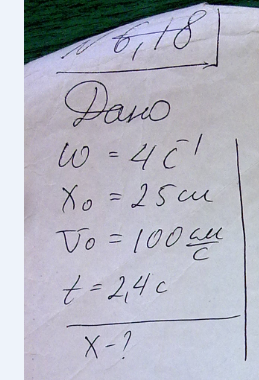 № 6,18
Дано
ω = 4 с⁻¹
x₀ = 25 см
v₀ = 100 см/с
t = 2,4 с
x - ?